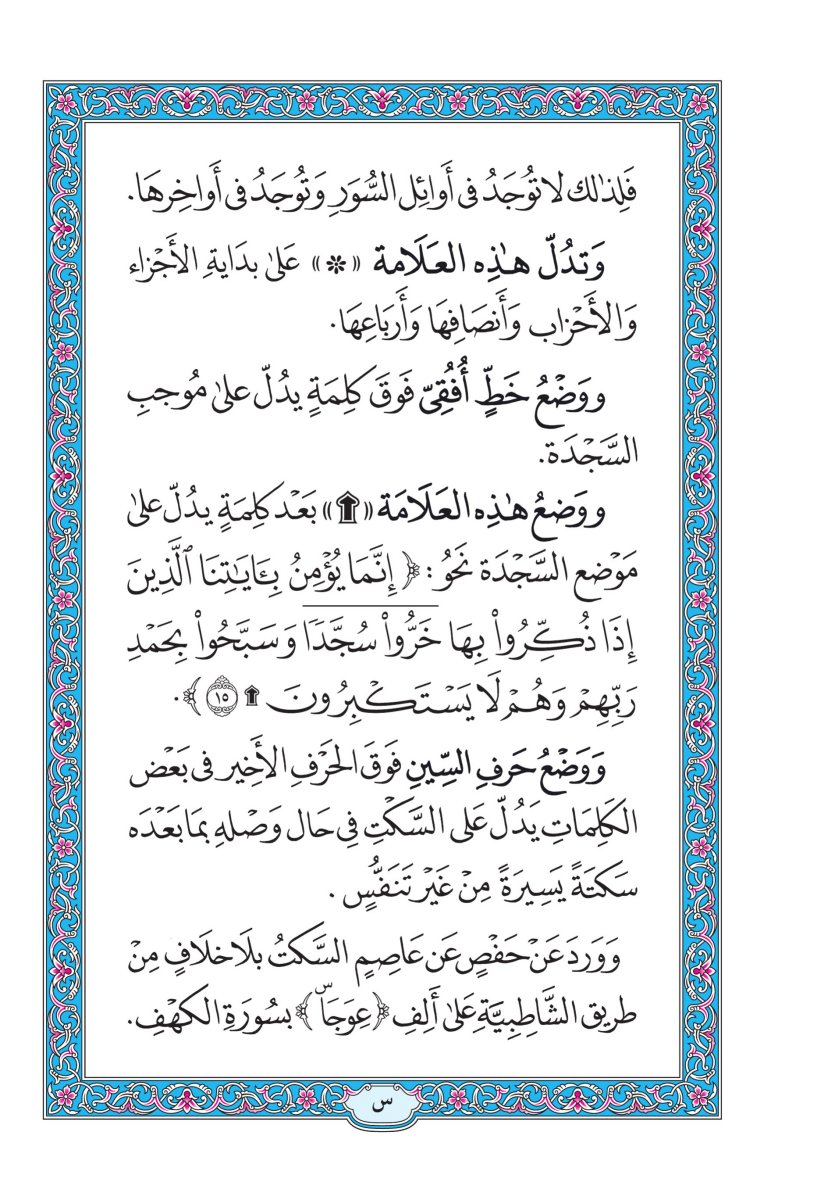 فَلِذَٰلك لا تُوجَدُ فى أَوائِل السُّوَرِ وَتُوجَدُ فى أَواخِرهَا.
وَتدُلّ هـٰذِه العَـلَامة «❊» عَلىٰ بدَايةِ الأَجْزاء
وَالأَحْزاب وَأَنصَافِهَا وَأَربَاعِهَا.
ووَضْعُ خَطٍّ أُفُقِىّ فَوقَ كلِمَةٍ يدُلّ علىٰ مُوجبِ
السَّجْدَة.
ووَضعُ هـٰذِه العَلَامَة «۩» بَعْد كلِمَةٍ يدُلّ علىٰ
مَوْضع السَّجْدَة نَحْوُ: ﴿ إِنَّمَا يُؤْمِنُ بِـَٔايَـٰتِنَا ٱلَّذِينَ
إِذَا ذُكِّرُواْ بِهَا خَرُّواْ سُجَّدًا وَسَبَّحُواْ بِحَمْدِ
رَبِّهِمْ وَهُمْ لَا يَسْتَكْبِرُونَ ۩ ١٥ ﴾.
وَوَضْعُ حَرفِ السِّينِ فَوقَ الحَرْفِ الأَخِير فى بَعْض
الكَلِمَاتِ يَدُلّ عَلى السَّكْتِ فِى حَال وَصْلهِ بمَا بَعْدَه
سَكتَةً يَسِيرَةً مِنْ غَيْر تَنَفُّسٍ .
وَوَردَ عَنْ حَفْصٍ عَن عَاصِمٍ السَّكتُ بلَا خلَافٍ مِنْ
طريق الشَّاطِبيَّةِ عَلىٰ أَلِفِ ﴿ عِوَجَاۜ ﴾ بسُورَةِ الكهْفِ.
س